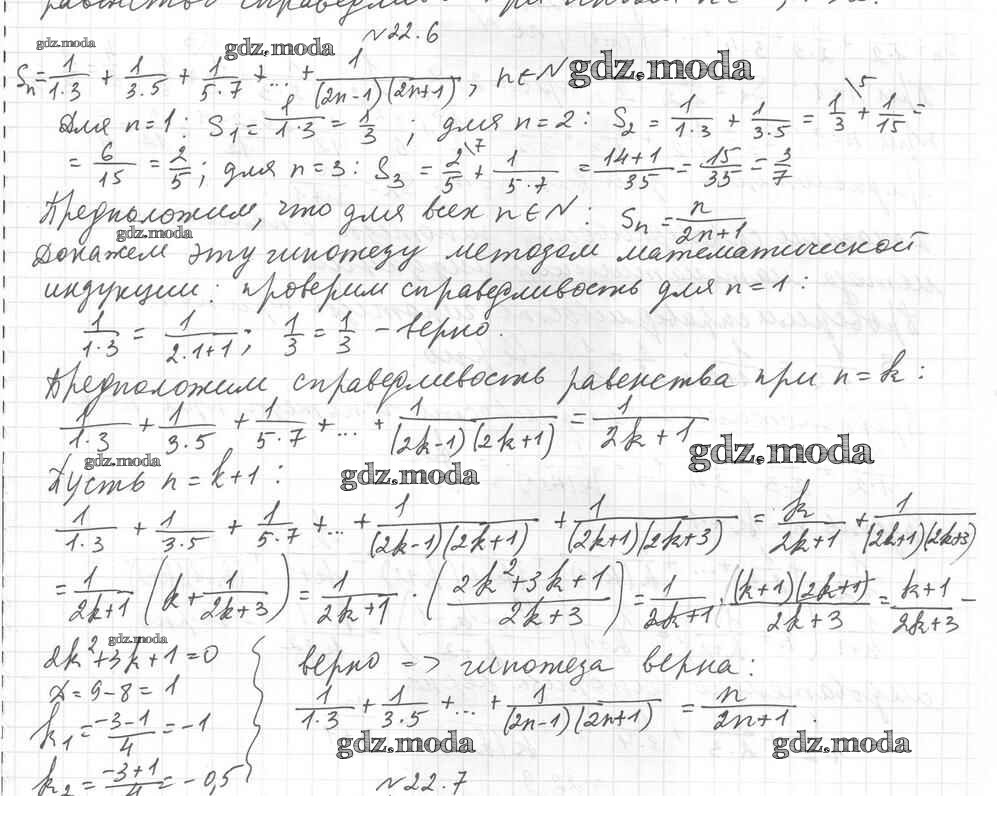 равенство справедливо при
№22.6
gdz.moda gdz.moda gdz.moda
Sn = 1/(1·3) + 1/(3·5) + 1/(5·7) + ... + 1/((2n-1)(2n+1)), n∈N
Для n=1: S₁ = 1/(1·3) = 1/3 ; для n=2: S₂ = 1/(1·3) + 1/(3·5) = 1/3\5 + 1/15 =
= 6/15 = 2/5; для n=3: S₃ = 2/5\7 + 1/(5·7) = (14+1)/35 = 15/35 = 3/7
Предположим, что для всех n∈N: Sn = n/(2n+1)
gdz.moda
Докажем эту гипотезу методом математической
индукции: проверим справедливость для n=1:
1/(1·3) = 1/(2·1+1); 1/3 = 1/3 – верно.
Предположим справедливость равенства при n=k:
1/(1·3) + 1/(3·5) + 1/(5·7) + ... + 1/((2k-1)(2k+1)) = 1/(2k+1)
gdz.moda gdz.moda gdz.moda
Пусть n=k+1:
1/(1·3) + 1/(3·5) + 1/(5·7) + ... + 1/((2k-1)(2k+1)) + 1/((2k+1)(2k+3)) = k/(2k+1) + 1/((2k+1)(2k+3))
= 1/(2k+1) (k + 1/(2k+3)) = 1/(2k+1) · ((2k²+3k+1)/(2k+3)) = 1/(2k+1) · ((k+1)(2k+1))/(2k+3) = (k+1)/(2k+3) –
gdz.moda
2k²+3k+1=0
Д=9-8=1
k₁ = (-3-1)/4 = -1
k₂ = (-3+1)/4 = -0,5
верно => гипотеза верна:
1/(1·3) + 1/(3·5) + ... + 1/((2n-1)(2n+1)) = n/(2n+1).
gdz.moda gdz.moda
№22.7